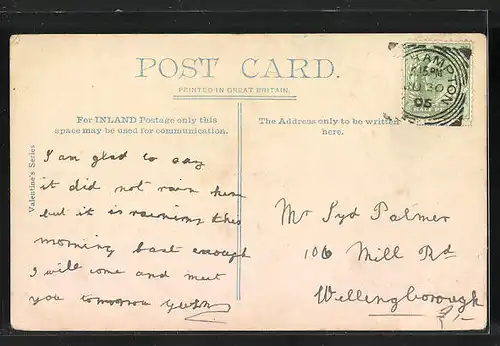 POST CARD.
PRINTED IN GREAT BRITAIN.
For INLAND Postage only this
space may be used for communication.
The Address only to be written
here.
Valentine's Series
AMPTON
15PM
30
05
I am glad to say
it did not rain here
but it is raining this
morning bad enough
I will come and meet
you tomorrow
Mr Syd Palmer
106 Mill Rd
Wellingborough